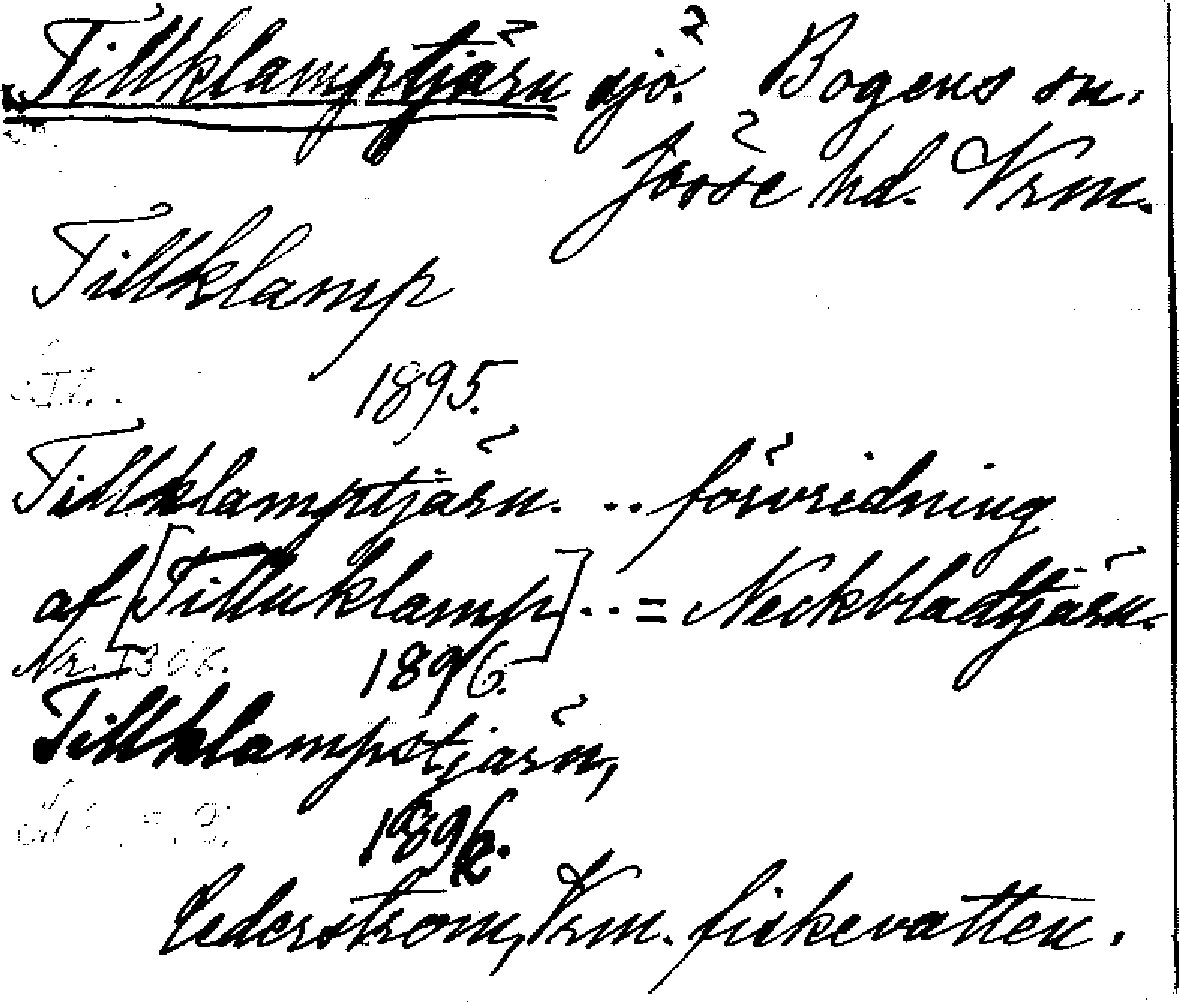 Tillklamptjärn sjö. Bogens sn.
Jösse hd. Vrm.
Tillklamp
1895.
Tillklamptjärn. .. förvridning
af [Tilluklamp] .. = Neckbladtjärn.
1896.
Tillklampstjärn,
1896.
Cederström, Vrm. fiskevatten.